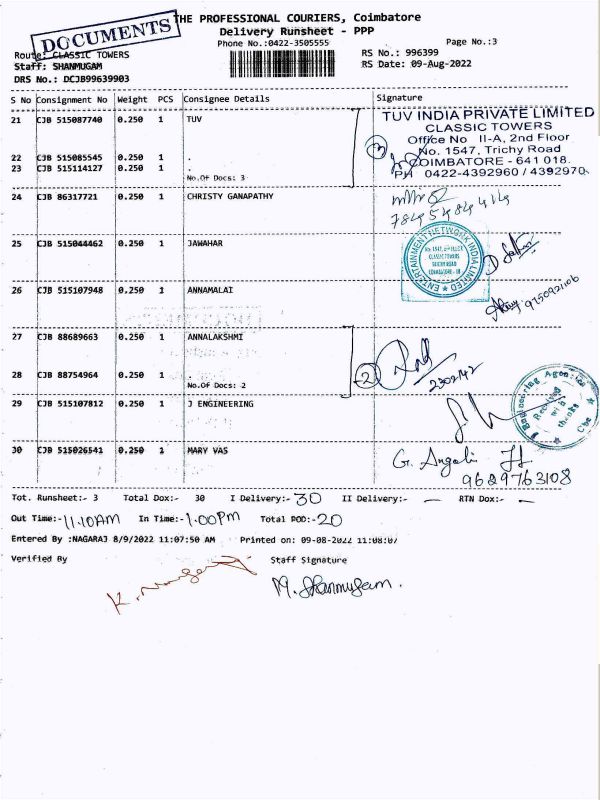 DOCUMENTS
THE PROFESSIONAL COURIERS, Coimbatore
Delivery Runsheet - PPP
Phone No.:0422-3505555 Page No.:3
Route: CLASSIC TOWERS RS No.: 996399
Staff: SHANMUGAM RS Date: 09-Aug-2022
DRS No.: DCJB99639903
S No Consignment No Weight PCS Consignee Details Signature
21 CJB 515087740 0.250 1 TUV
TUV INDIA PRIVATE LIMITED
CLASSIC TOWERS
Office No II-A, 2nd Floor
No. 1547, Trichy Road
COIMBATORE - 641 018.
PH 0422-4392960 / 4392970
3
22 CJB 515085545 0.250 1 .
23 CJB 515114127 0.250 1 .
No.Of Docs: 3
24 CJB 86317721 0.250 1 CHRISTY GANAPATHY
25 CJB 515044462 0.250 1 JAWAHAR
ENTERTAINMENT NETWORK INDIA LIMITED
CLASSIC TOWERS
TRICHY ROAD
26 CJB 515107948 0.250 1 ANNAMALAI
27 CJB 88689663 0.250 1 ANNALAKSHMI
28 CJB 88754964 0.250 1 .
No.Of Docs: 2
2
29 CJB 515107812 0.250 1 J ENGINEERING
J Engineering Agencies Cbe
Received with thanks
30 CJB 515026541 0.250 1 MARY VAS
G. Angali
9629763108
Tot. Runsheet:- 3 Total Dox:- 30 I Delivery:- 30 II Delivery:- — RTN Dox:- —
Out Time:- 11.10AM In Time:- 1.00PM Total POD:- 20
Entered By :NAGARAJ 8/9/2022 11:07:50 AM Printed on: 09-08-2022 11:08:07
Verified By Staff Signature
M. Shanmugam.